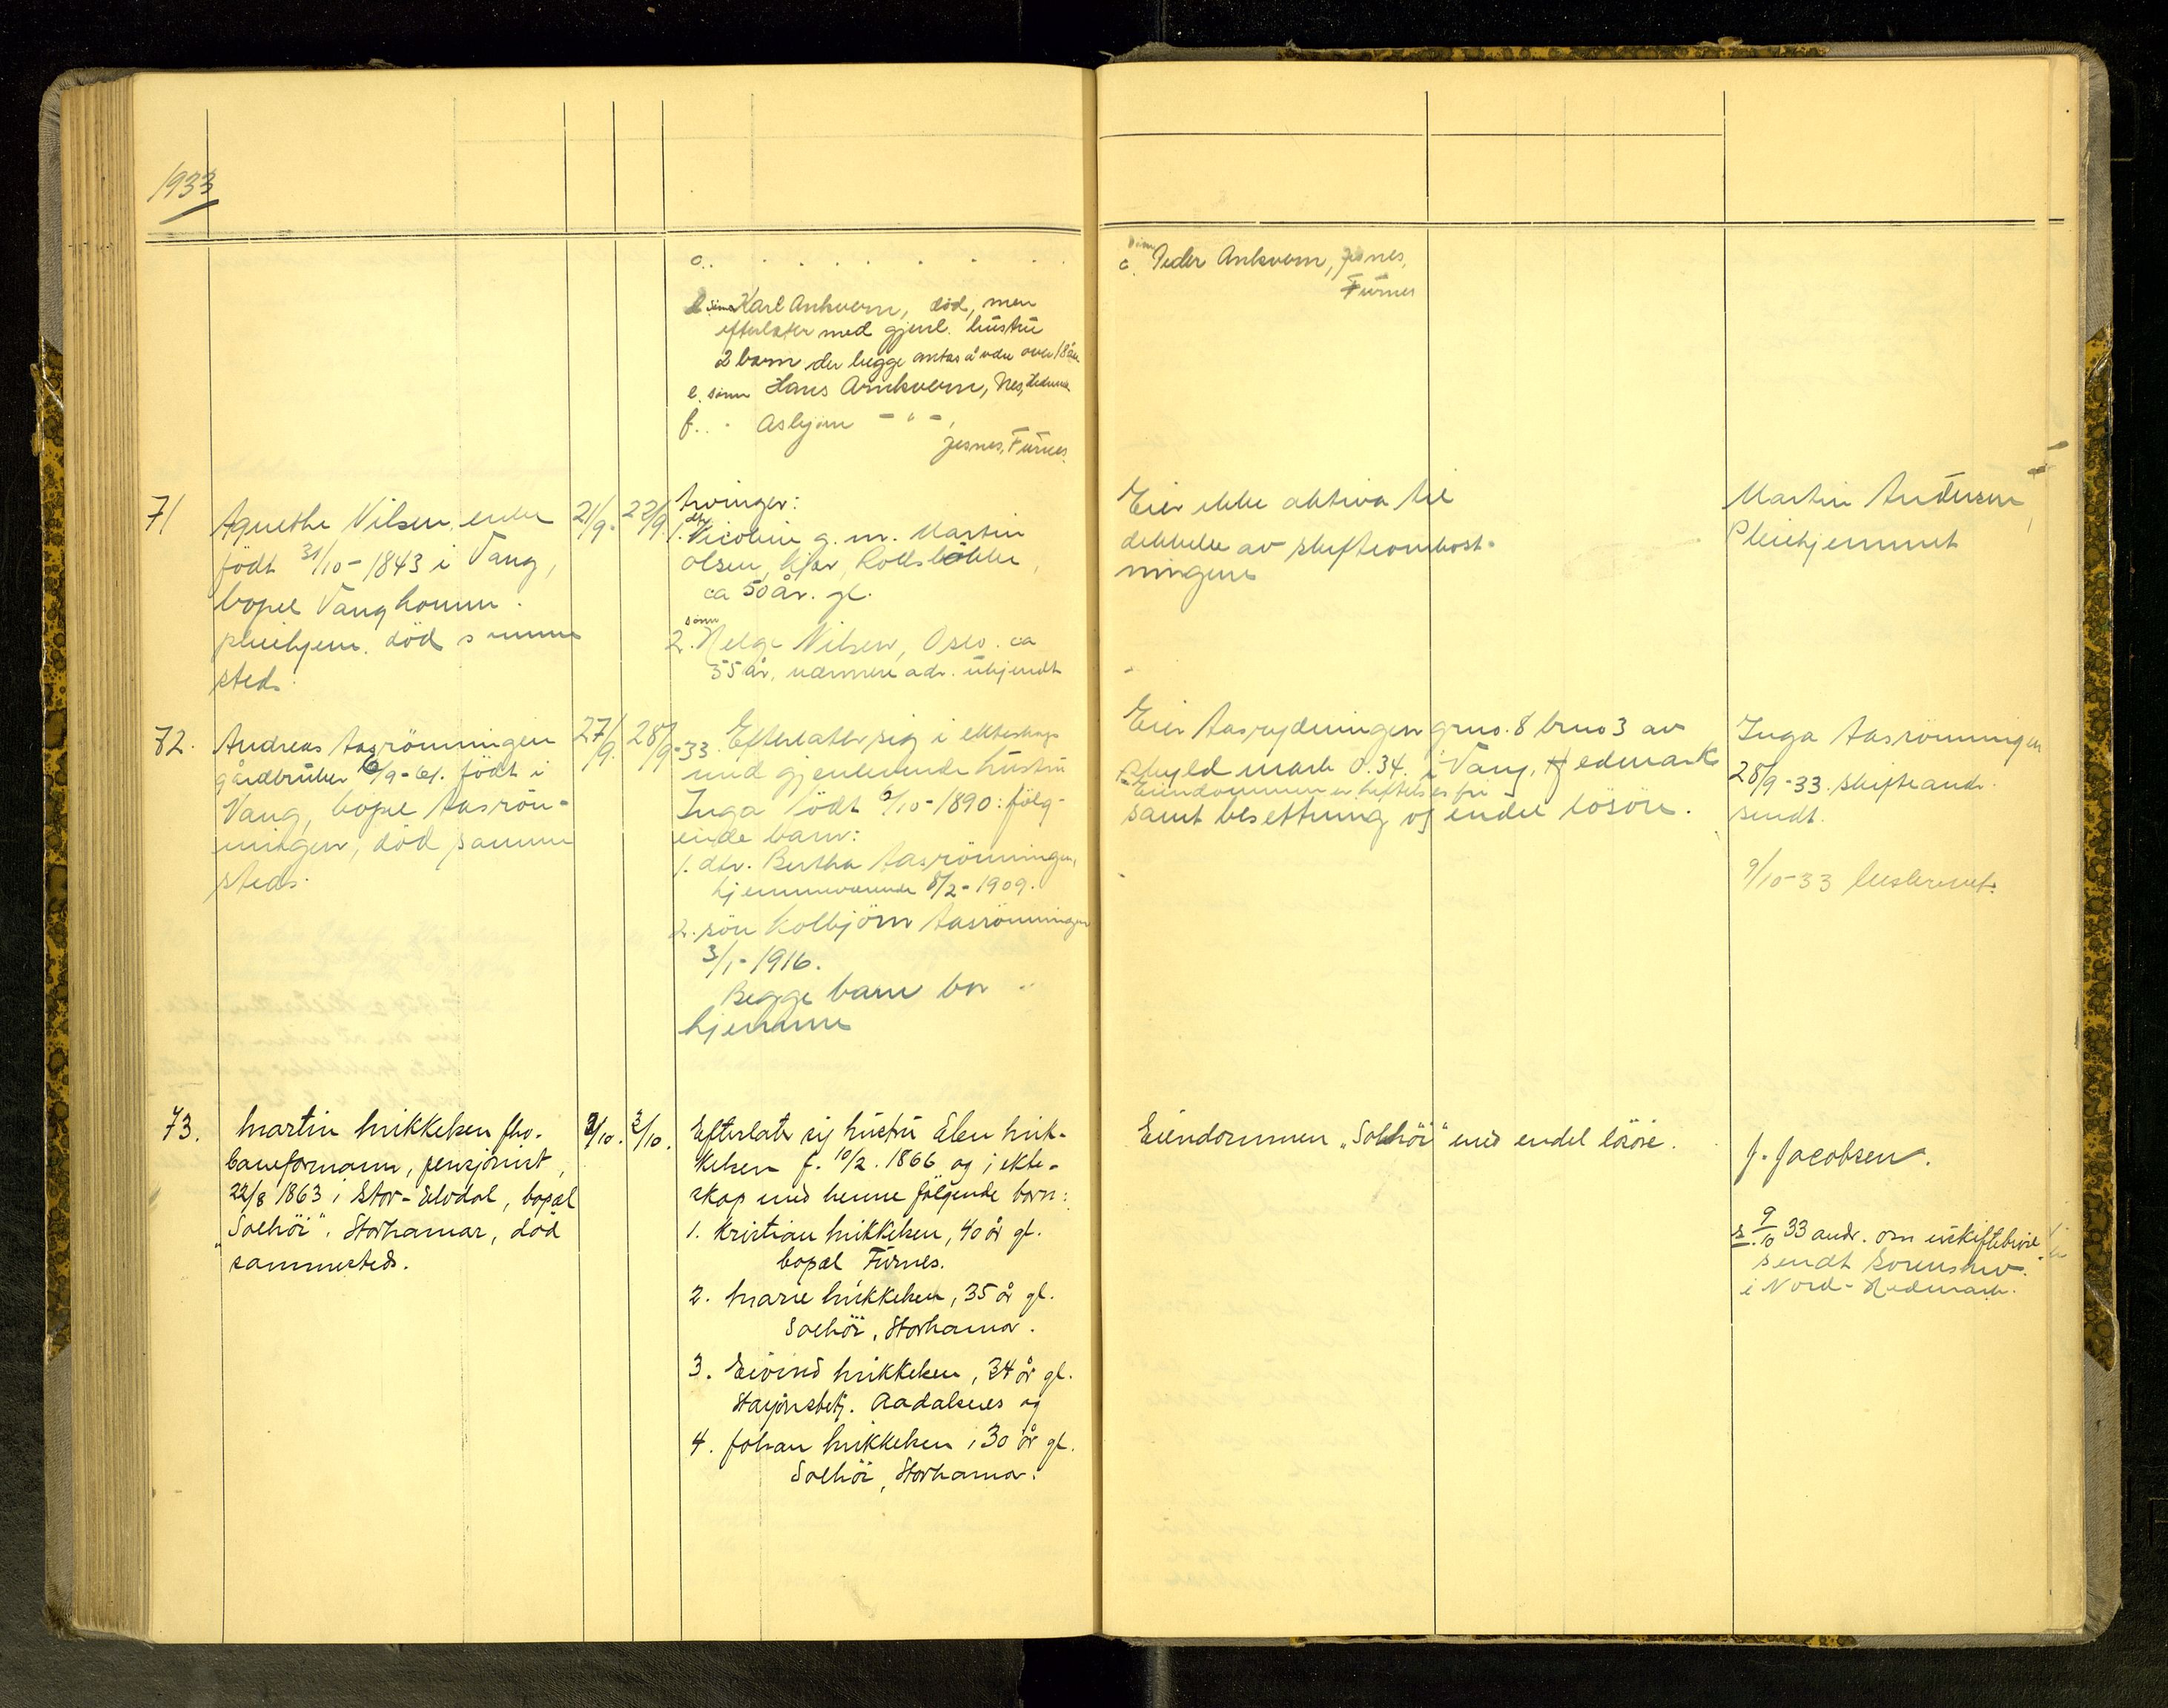 1933
c. . . . . . . .
sönn Karl Ankvern, död, men
efterlater med gjenl. hustru
2 barn der begge antas å være over 18 år
e. sönn Hans Arnkvern, Nes, Hedmark
f. . - Asbjörn - " -,
Jesnes, Furnes.
sönn
c. Peder Ankvern, Jesnes,
Furnes
71
Agnethe Nilsen, enke
födt 31/10-1843 i Vang,
bopel Vang komm.
pleiehjem. död samme
sted.
21/9.
22/9.
Arvinger:
1. dtr. Nicoline g. m. Martin
Olsen, Kjos, Rollsløkken,
ca 50 år. gl.
sönn
2. Helge Nilsen, Oslo. ca
55 år, nærmere adr. ukjendt
Eier ikke aktiva til
dekkelse av skifteomkost-
ningene
Martin Andersen,
Pleiehjemmet
72.
Andreas Aasrönningen
gårdbruker 6/9-61. födt i
Vang, bopel Aasrön-
ningen, död samme
steds.
27/9.
28/9-33.
Efterlater sig i ekteskap
med gjenlevende hustru
Inga födt 9/10-1890: fölg-
ende barn:
1. dtr. Bertha Aasrönningen,
hjemmeværende 8/2-1909.
2. sön Kolbjörn Aasrönningen
3/1-1916.
Begge barn bor
hjemme
Eier Aasrydningen grno. 8 brno 3 av
skyld mark 0.34. i Vang, Hedmark
Eiendommen er heftelsesfri
samt besettning og endel lösöre.
Inga Aasrönningen
28/9-33. skifteandr.
sendt.
9/10-33
73.
Martin Mikkelsen fhv.
baneformann, pensjonist,
22/8 1863 i Stor-Elvdal, bopæl
"Solhöi", Storhamar, död
sammesteds.
2/10.
3/10.
Efterlater sig hustru Elen Mik-
kelsen f. 10/2. 1866 og i ekte-
skap med henne fölgende barn:
1. Kristian Mikkelsen, 40 år gl.
bopæl Furnes.
2. Marie Mikkelsen, 35 år gl.
Solhöi, Storhamar.
3. Eivind Mikkelsen, 34 år gl.
Stasjonsbetj. Aadalsnes og
4. Johan Mikkelsen, 30 år gl.
Solhöi, Storhamar.
Eiendommen "Solhöi" med endel lösöre.
J. Jacobsen.
s. 9/10 33 andr. om uskiftebevil.
sendt Sorenskr.
i Nord-Hedmark.